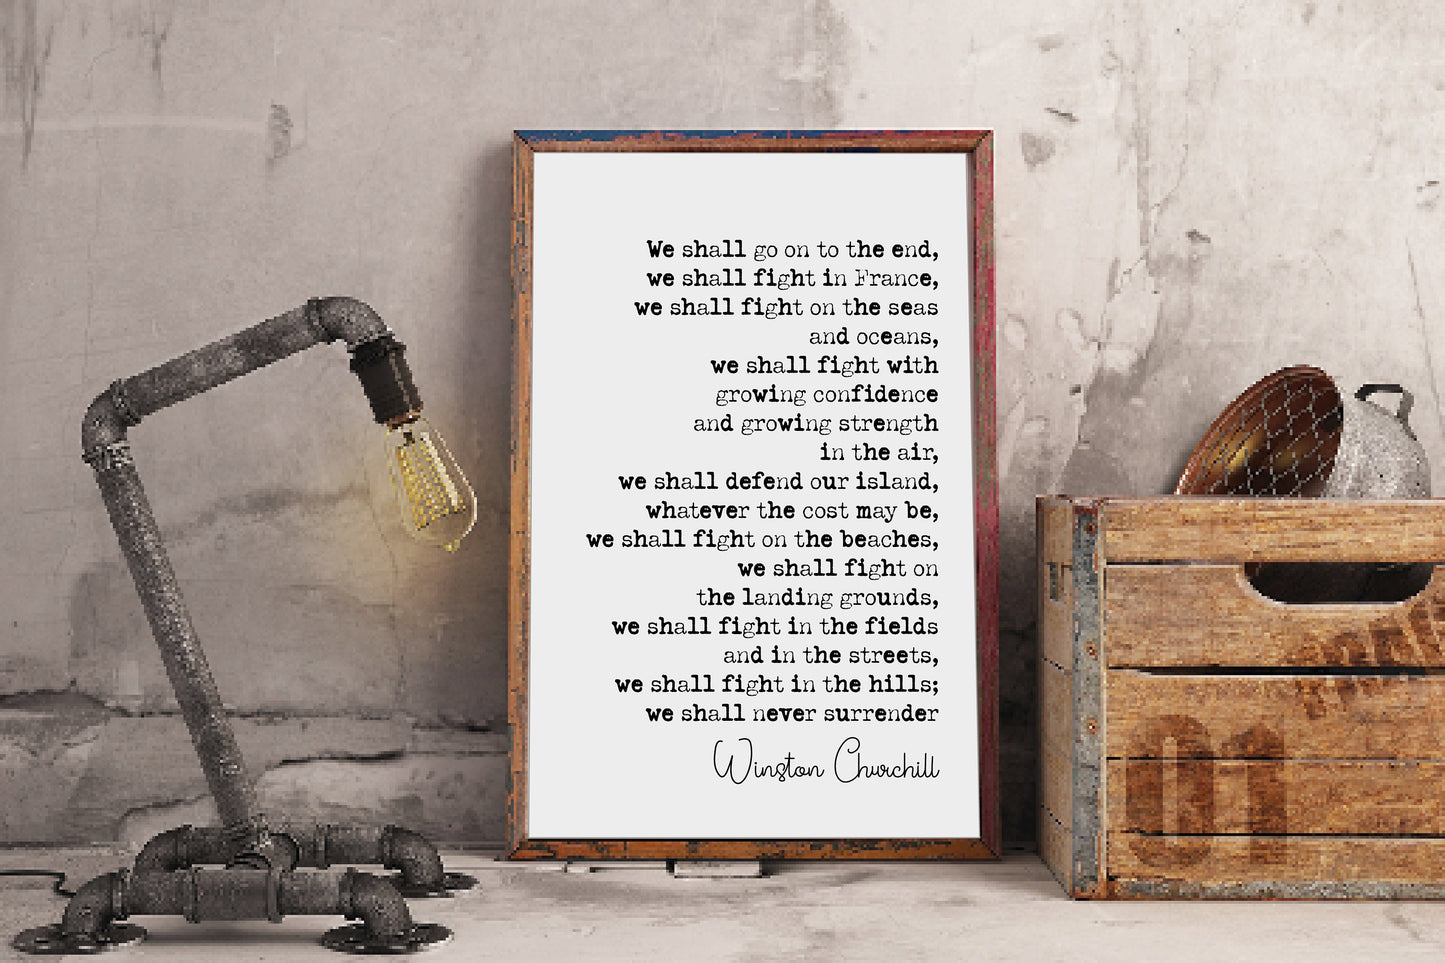 We shall go on to the end,
we shall fight in France,
we shall fight on the seas
and oceans,
we shall fight with
growing confidence
and growing strength
in the air,
we shall defend our island,
whatever the cost may be,
we shall fight on the beaches,
we shall fight on
the landing grounds,
we shall fight in the fields
and in the streets,
we shall fight in the hills;
we shall never surrender
Winston Churchill
01